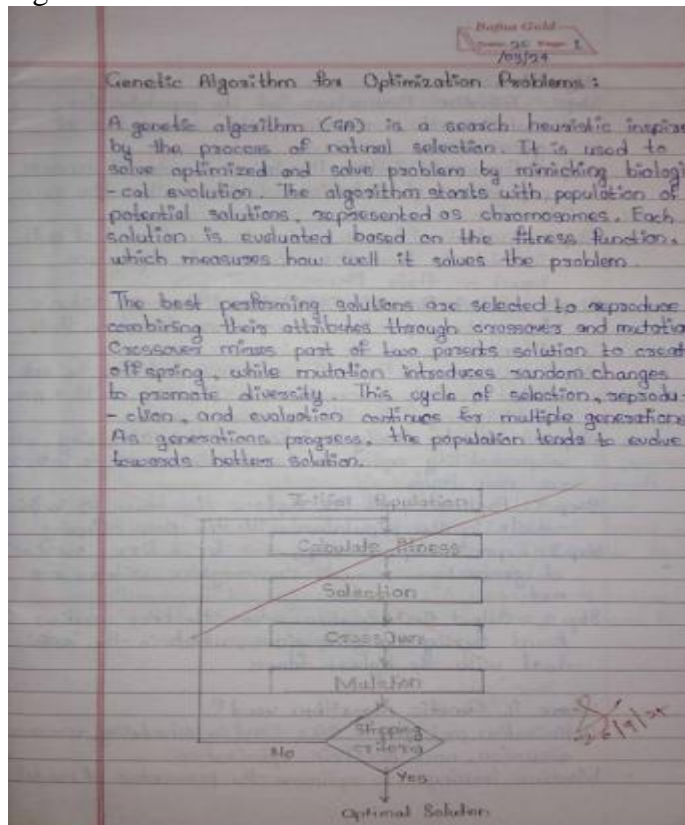 Bafna Gold
Date: 25 Page: 1
/09/24
Genetic Algorithm for Optimization Problems :
A genetic algorithm (GA) is a search heuristic inspire
by the process of natural selection. It is used to
solve optimized and solve problem by mimicking biologi
-cal evolution. The algorithm starts with population of
potential solutions, represented as chromosomes. Each
solution is evaluated based on the fitness function,
which measures how well it solves the problem
The best performing solutions are selected to reproduce
combining their attributes through crossover and mutatio
Crossover part of two parents solution to creat
offspring, while mutation introduces random changes
to promote diversity. This cycle of selection, reprodu-
-ction, and evaluation continues for multiple generations
As generations progress, the population tends to evolve
towards better solution.
Initial Population
Calculate fitness
Selection
Mutation
Stopping
criteria
No
Yes
Optimal Solution